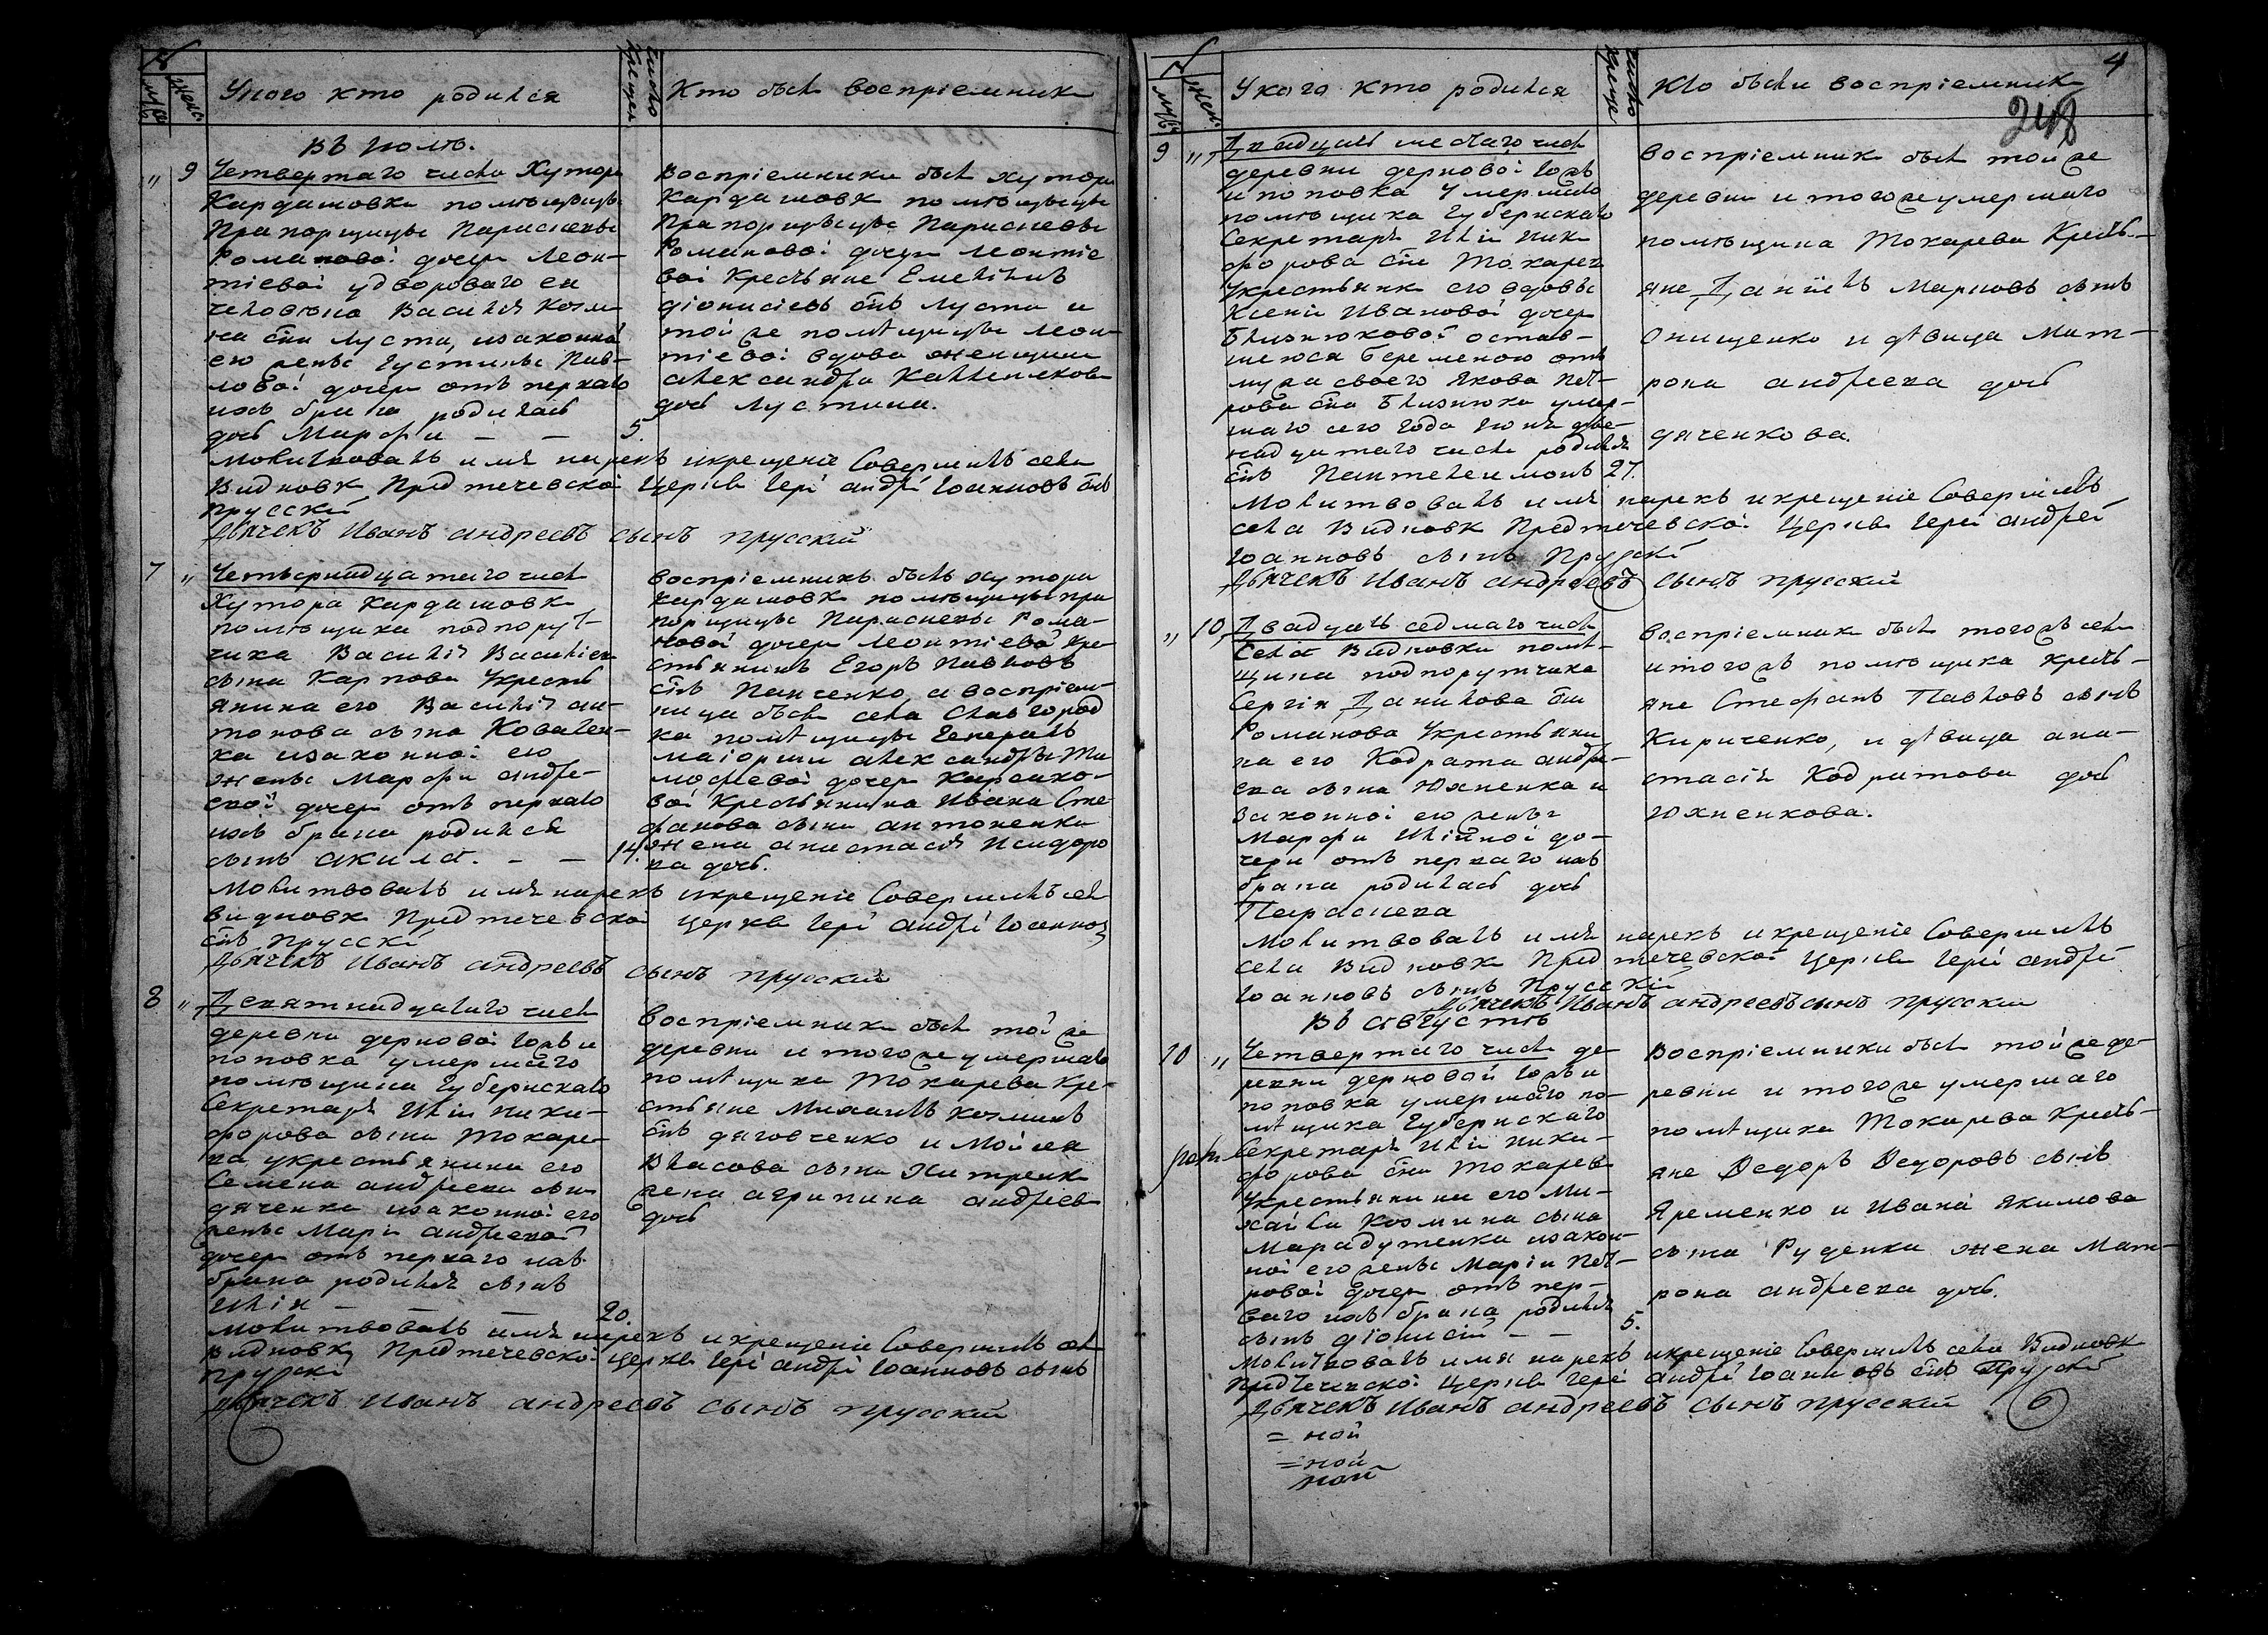 У кого кто родился
число крещен
Кто был восприемник
Въ июлѣ.
" 9
Четвертаго числа Хутора
Кардашовки помѣщицы
Прапорщицы Парасковьи
Романовой дочери Леон-
тіевой у двороваго ея
человѣка Василія Козми-
на сна Луста, изаконной
его жены Густины Пав-
ловой дочери отъ перваго
ихъ брака родилась
дочь Марфа — — 5.
Восприемники был хутора
Кардашовк помѣщицы
Прапорщицы Парасковьи
Романовой дочери Леонтіе
вой Крестьяне Емеліянъ
діонисіевъ снъ Луста и
той же помѣщицы Леон-
тіевой вдова женщина
александра
дочь Лустина.
Молитвовалъ имя нарекъ икрещеніе Совершилъ села
Видновк Предтечевской Церкви Іерей андрей Іоанновъ снъ
прусскій
Дьячекъ Иванъ андреевъ сынъ прусскій
7 "
Четырнадцатаго числа
Хутора Кардашовк
помѣщика подпорут-
чика Василія Васильев
сына Карпова Укресть
янина его Василія ан-
тонова сына Ковален-
ка изаконной его
жены Марфы андре-
евой дочери отъ перваго
ихъ брака родился
сынъ акила. — — 14.
восприемникъ былъ хутора
кардашовк помѣщицы пра
порщицы Парасковьи Рома-
новой дочери Леонтіевой кре-
стьянинъ Егоръ Павловъ
снъ Панченко, а восприем-
ница была села Славгород
ка помѣщицы Генералъ
маіорши александры Ти
мофѣевой дочери Корсако-
вой Крестьянина Ивана Сте
фанова сына антоненка
жена анастасія Исидоро
ва дочь.
Молитвовалъ имя нарекъ икрещеніе Совершилъ сел
видновк Предтечевской церкви Іерей андрей Іоаннов
снъ прусскій
Дьячекъ Иванъ андреевъ сынъ прусскій
8 "
Девятнадцатаго числа
деревни дерновой Тожъ и
поповка умершаго
помѣщика Губернскаго
Секретаря Иліи Ники-
форова сына Токаре-
ва укрестьянина его
Семена андреева сына
дяченка изаконной его
жены Маріи андреевой
дочери отъ перваго ихъ
брака родился сынъ
Илія — — — 20.
восприемник был той же
деревни и тогоже умершаго
помѣщика Токарева Кре-
стьяне Михаилъ козминъ
снъ дяговченко и Мойсея
Власова сына Хитренк
жена агрипина андреев
дочь
Молитвовалъ имя нарекъ икрещеніе Совершилъ сел
Видновк Предтечевской церкви Іерей андрей Іоанновъ сынъ
прусскій
Дьячекъ Иванъ андреевъ сынъ прусскій
4
248
У кого кто родился
число креще
Кто были восприемник
9 "
Двадцать шестаго числ
деревни дерновой Тожъ
и поповка Умершаго
помѣщика Губернскаго
Секретаря Иліи Ники
форова сна Токарев
Укрестьянк его вдовы
Ксеніи Ивановой дочери
Близнюковой остав-
шеюся беременною отъ
мужа своего Якова Пет-
рова сна Близнюка умер-
шаго сего года Іюня две-
надцатаго числа родился
снъ Пантелеимонъ 27.
восприемник был той же
деревни и тогоже умершаго
помѣщика Токарева Кресть-
яне Даніилъ Марковъ сынъ
Онищенко и дѣвица Мат-
рона андреева дочь
дяченкова.
Молитвовалъ имя нарекъ икрещеніе Совершилъ
села Видновк Предтечевской Церкви Іерей андрей
Іоанновъ сынъ Прусскі
Дьячекъ Иванъ андреевъ сынъ прусскій
" 10
Двадцать седмаго числ
Села Видновки помѣ-
щика подпорутчика
Сергія Данилова сна
Романова Укрестьяни
на его Кодрата андре-
ева сына Юхненка и
законной его жены
Марфы Иліиной до-
чери отъ перваго ихъ
брака родилась дочь
Параскева
восприемник был тогожъ села
итогожъ помѣщика кресть-
яне Стефанъ Павловъ сынъ
Кириченко, и дѣвица ана-
стасія Кодратова дочь
Юхненкова.
Молитвовалъ имя нарекъ икрещеніе Совершилъ
села Видновк Предтечевской Церкви Іерей андрей
Іоанновъ сынъ Прусскій
Дьячекъ Иванъ андреевъ сынъ прусскій
Въ августѣ
10 "
Четвертаго числ де-
ревни дерновой Тожъ и
поповка умершаго по-
мѣщика Губернскаго
Секретаря Иліи Ники-
форова сна Токарев
Укрестьянина его Ми-
хайла Козмина сына
Марадутенка изакон-
ной его жены Маріи Пет-
ровой дочери отъ пер-
ваго ихъ брака родился
сынъ діонисій — — 5.
Восприемники был той же де-
ревни и тогоже умершаго
помѣщика Токарева Кресть-
яне Ѳедоръ Ѳедоровъ сынъ
Яременко и Ивана Якимова
сына Руденка жена Мат-
рона андреева дочь.
Молитвовалъ имя нарекъ икрещеніе Совершилъ села Видновк
Предтечевской Церкви Іерей андрей Іоанновъ снъ Прусскій
Дьячекъ Иванъ андреевъ сынъ прусскій
= ной
= ной
ной